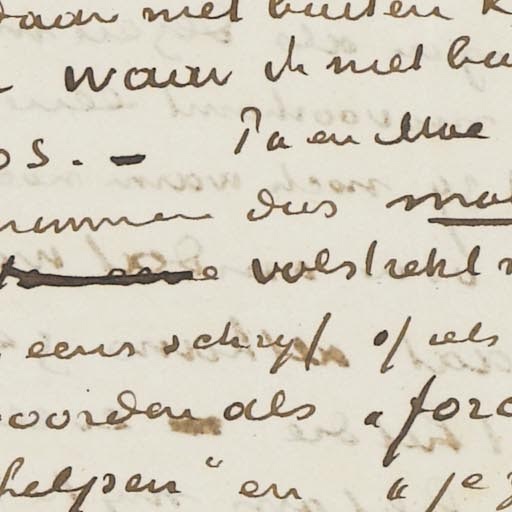 daar niet buiten k
waar ik niet bu
os. - Pa en Moe
nemen dus
volstrekt n
eens schryf of iets
woorden als „forc
helpen" en „je z